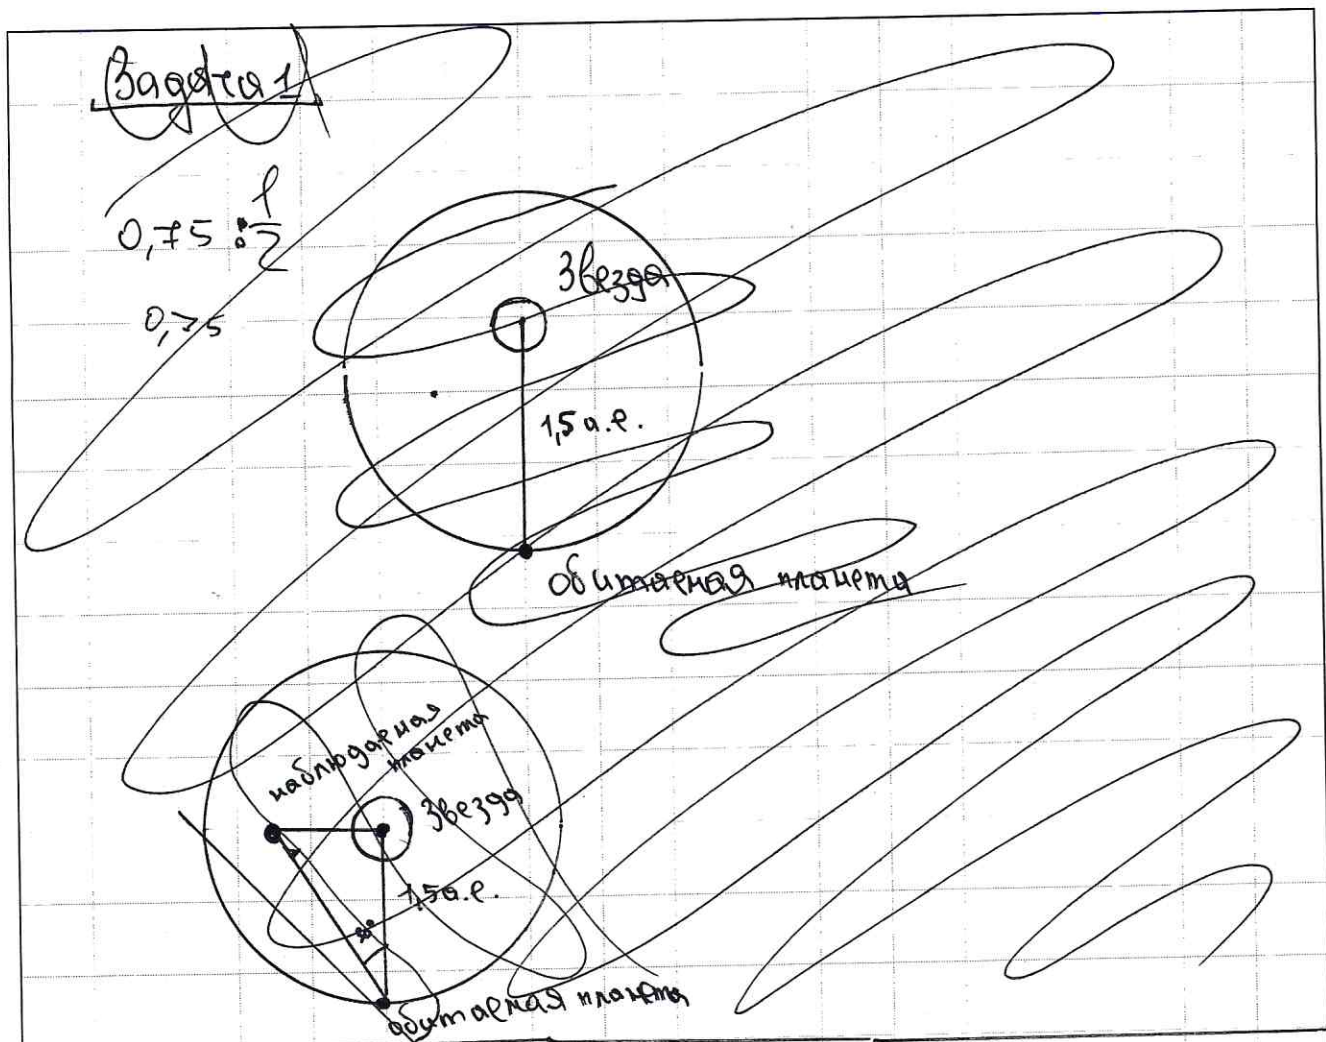 Задача 1
0,75 : 1/2
0,75
Звезда
1,5 а.е.
обитаемая планета
наблюдаемая
планета
Звезда
1,5 а.е.
30°
обитаемая планета